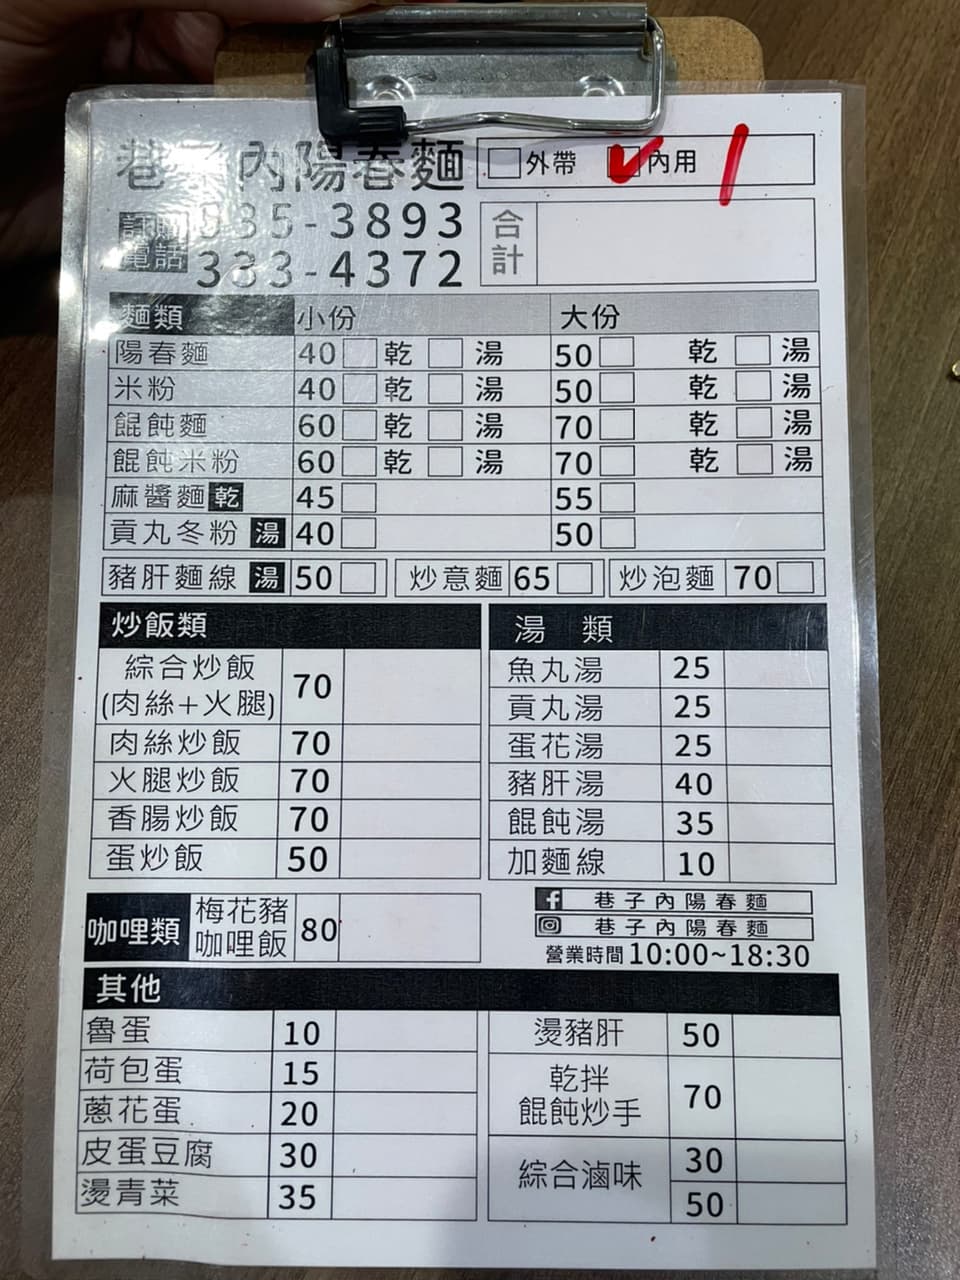 巷子內陽春麵 □外帶 ☑內用 1
訂購電話 935-3893
333-4372
合計
麵類 小份 大份
陽春麵 40 □乾 □湯 50 □乾 □湯
米粉 40 □乾 □湯 50 □乾 □湯
餛飩麵 60 □乾 □湯 70 □乾 □湯
餛飩米粉 60 □乾 □湯 70 □乾 □湯
麻醬麵 乾 45 □ 55 □
貢丸冬粉 湯 40 □ 50 □
豬肝麵線 湯 50 □ 炒意麵 65 □ 炒泡麵 70 □
炒飯類
綜合炒飯
(肉絲+火腿) 70
肉絲炒飯 70
火腿炒飯 70
香腸炒飯 70
蛋炒飯 50
湯 類
魚丸湯 25
貢丸湯 25
蛋花湯 25
豬肝湯 40
餛飩湯 35
加麵線 10
咖哩類 梅花豬
咖哩飯 80
巷子內陽春麵
巷子內陽春麵
營業時間 10:00~18:30
其他
魯蛋 10
荷包蛋 15
蔥花蛋 20
皮蛋豆腐 30
燙青菜 35
燙豬肝 50
乾拌
餛飩炒手 70
綜合滷味 30
50